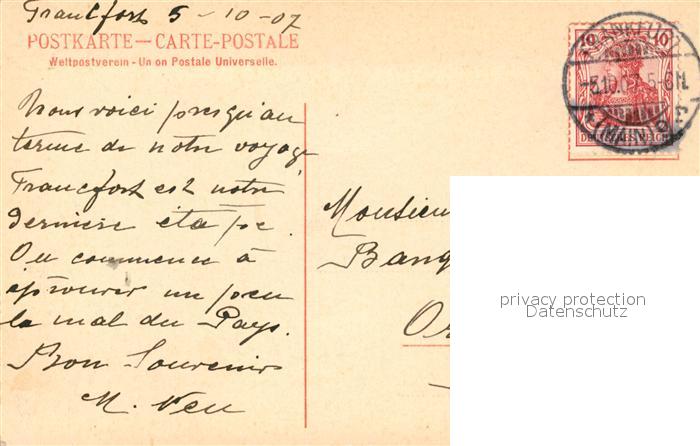 Francfort 5-10-07
POSTKARTE — CARTE-POSTALE
Weltpostverein - Un on Postale Universelle.
Nous voici presqu'au
terme de notre voyage
Francfort est notre
dernière étape.
On commence à
éprouver un peu
le mal du Pays.
Bon Souvenir
M.
10 10
DEUTSCHES REICH
-5.10.07. 5-6 N.
(MAIN)
Monsieur
Banq
Or
privacy protection
Datenschutz